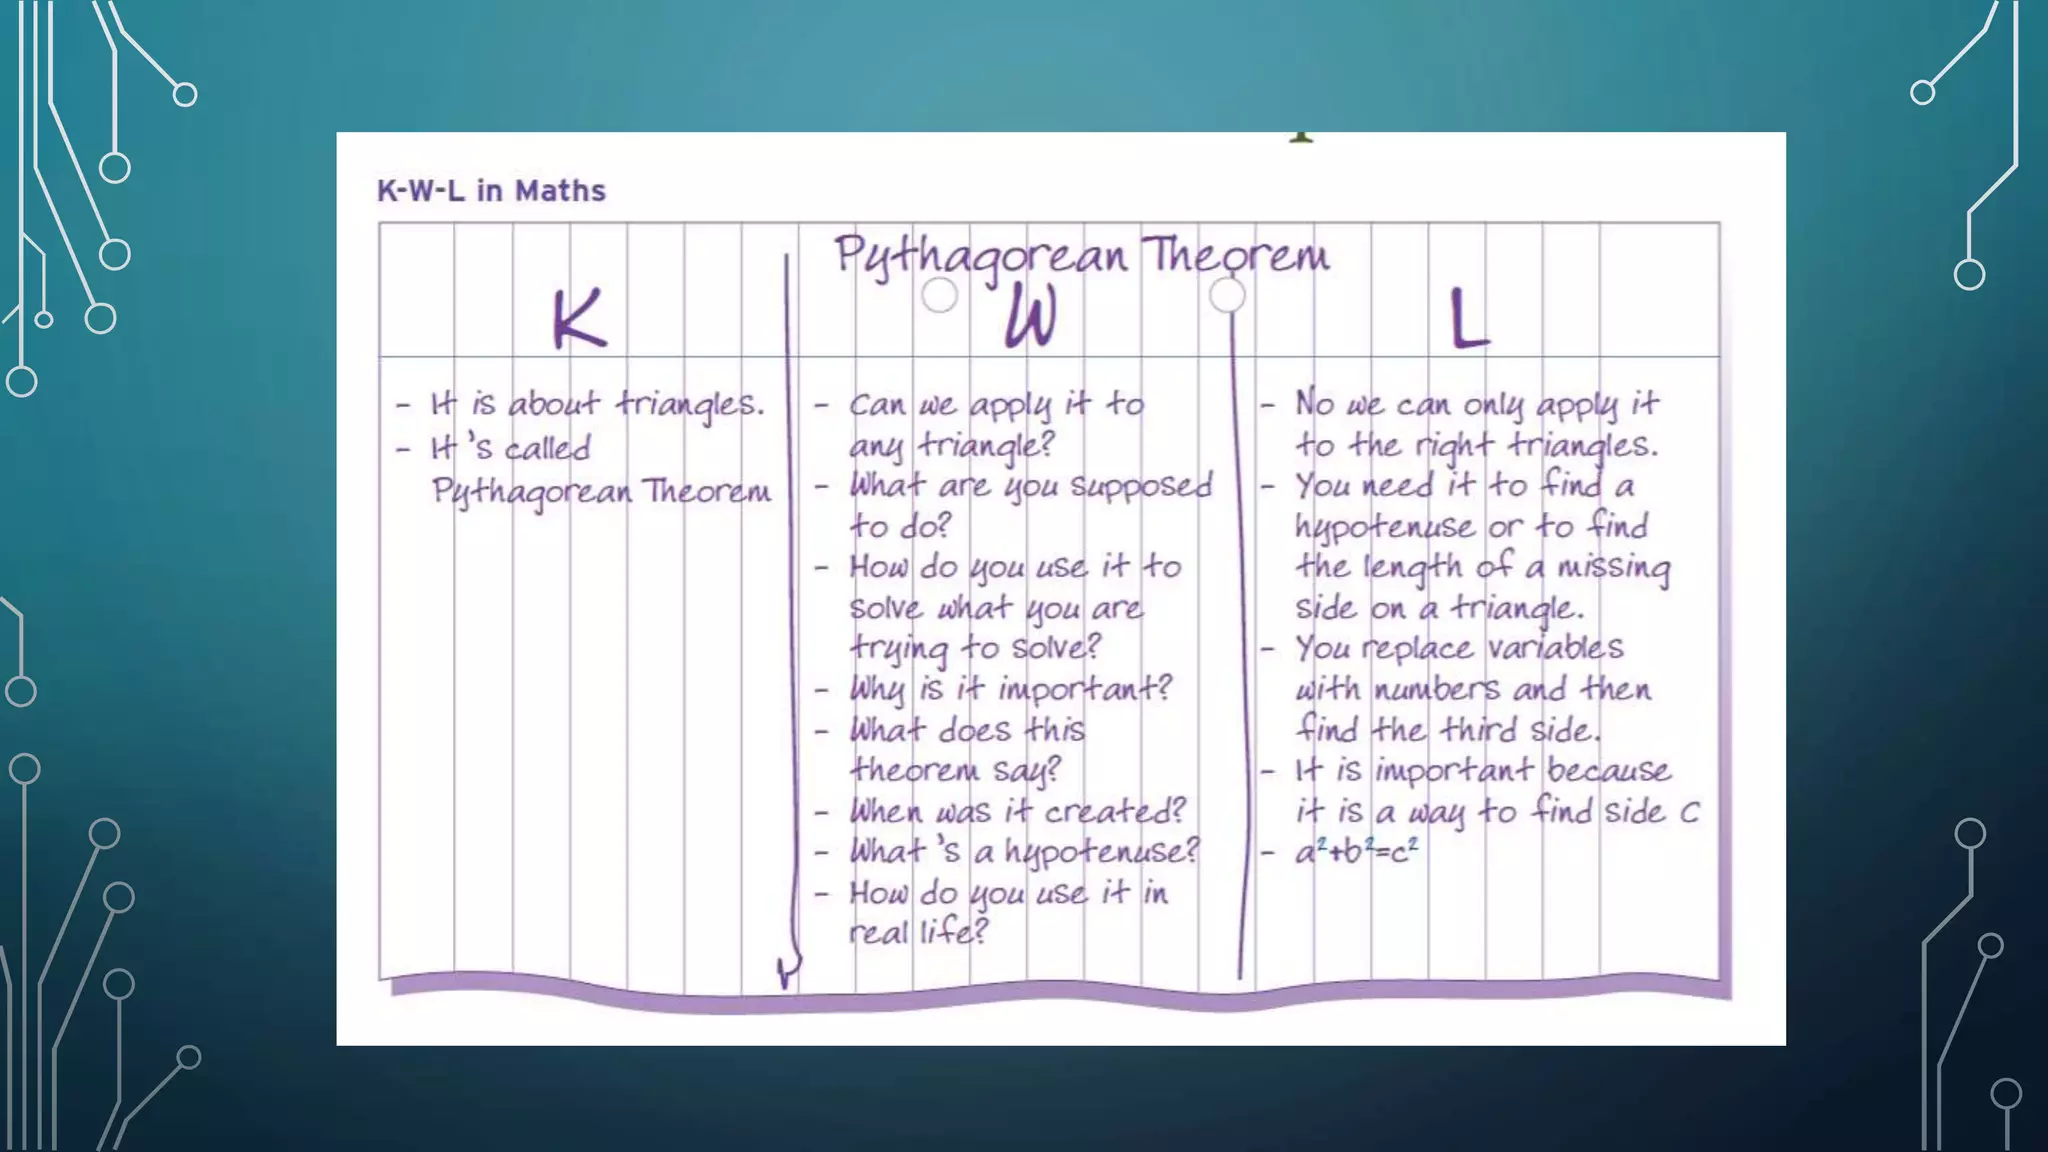 K-W-L in Maths
Pythagorean Theorem
K
W
L
- It is about triangles.
- It's called
Pythagorean Theorem
- Can we apply it to
any triangle?
- What are you supposed
to do?
- How do you use it to
solve what you are
trying to solve?
- Why is it important?
- What does this
theorem say?
- When was it created?
- What's a hypotenuse?
- How do you use it in
real life?
- No we can only apply it
to the right triangles.
- You need it to find a
hypotenuse or to find
the length of a missing
side on a triangle.
- You replace variables
with numbers and then
find the third side.
- It is important because
it is a way to find side c
- a²+b²=c²